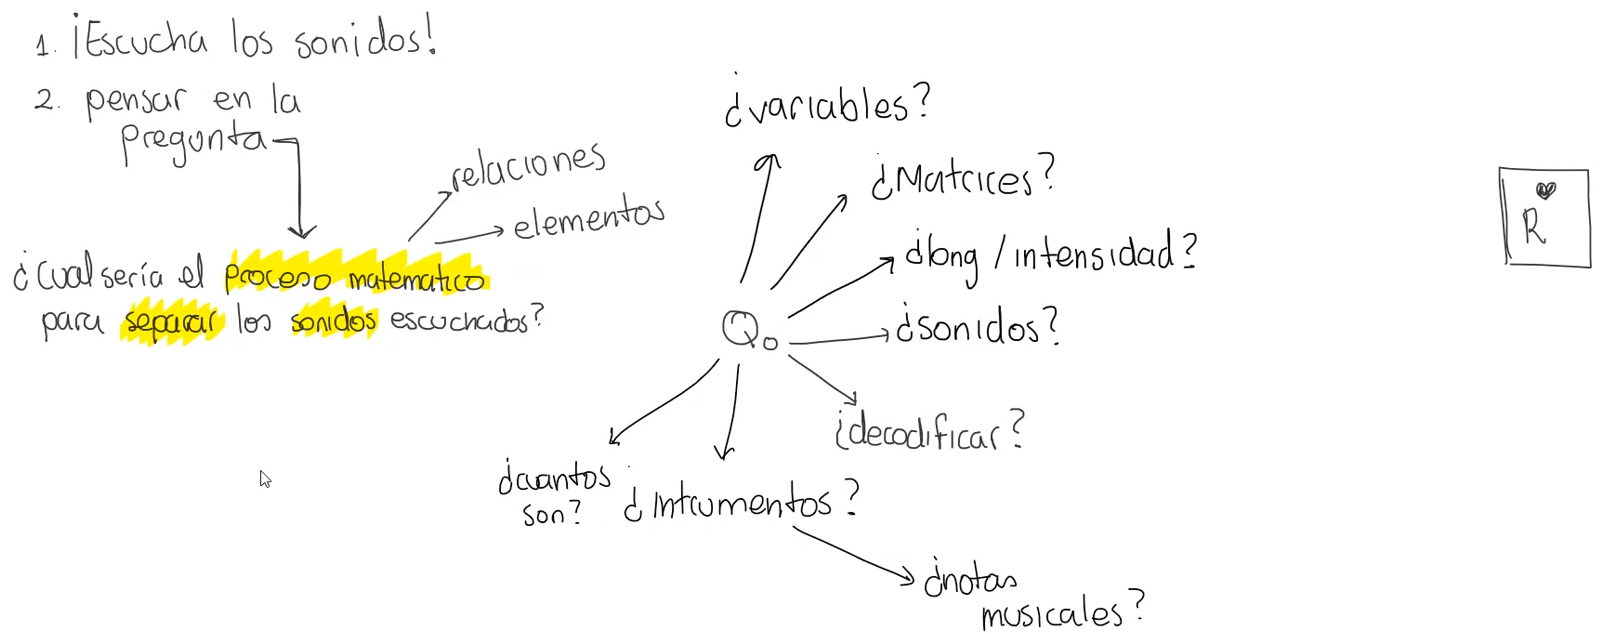 1. ¡Escucha los sonidos!
2. pensar en la
pregunta
relaciones
elementos
¿Cual sería el proceso matematico
para separar los sonidos escuchados?
¿variables?
¿Matrices?
¿long / intensidad?
Qo
¿sonidos?
¿decodificar?
¿cuantos
son?
¿Intrumentos?
¿notas
musicales?
R